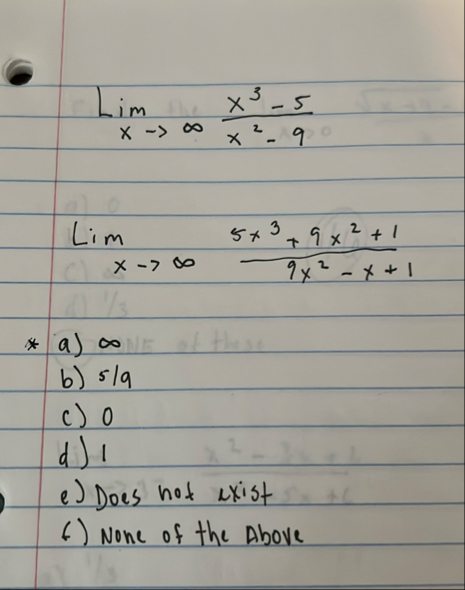 Lim x -> ∞ x³ - 5 / x² - 9
Lim x -> ∞ 5x³ + 9x² + 1 / 9x² - x + 1
* a) ∞
b) 5/9
c) 0
d) 1
e) Does not exist
f) None of the Above